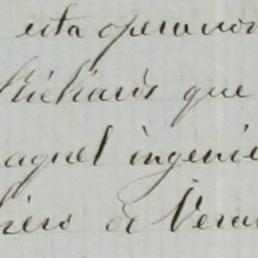 esta operacion
Richards que
aquel ingenie
niero á Vera